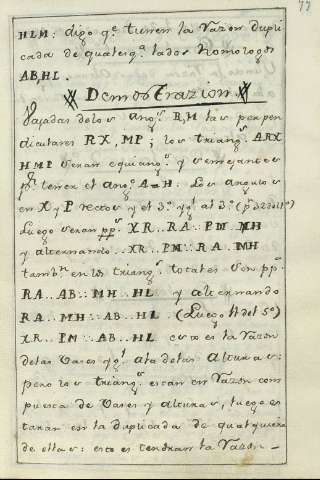 77
HLM: digo q.e tienen la razon dupli
cada de qualesq.a lados homologos
AB, HL.
Demostrazion
Bajadas de los ang.s B, M las perpen
diculares RX, MP; los triang.s ARX
HMP seran equiang.s y semejantes
p.r tener el ang.o A=H. Los angulos
en X y P rectos y el 3.o yg.l al 3.o (p.r 32 del 1.o)
Luego seran pp.s XR..RA::PM..MH
y alternando.. XR..PM::RA..MH
tamb.n en los triang.s totales son pp.s
RA..AB::MH..HL y alternando
RA..MH::AB..HL (Luego 11 del 5.o)
XR..PM::AB..HL esto es la razon
de las vases yg.l a la de las alturas:
pero los triang.s estan en razon com
puesta de vases y alturas, luego es
taran en la duplicada de qualquiera
de ellas: esto es tendran la razon